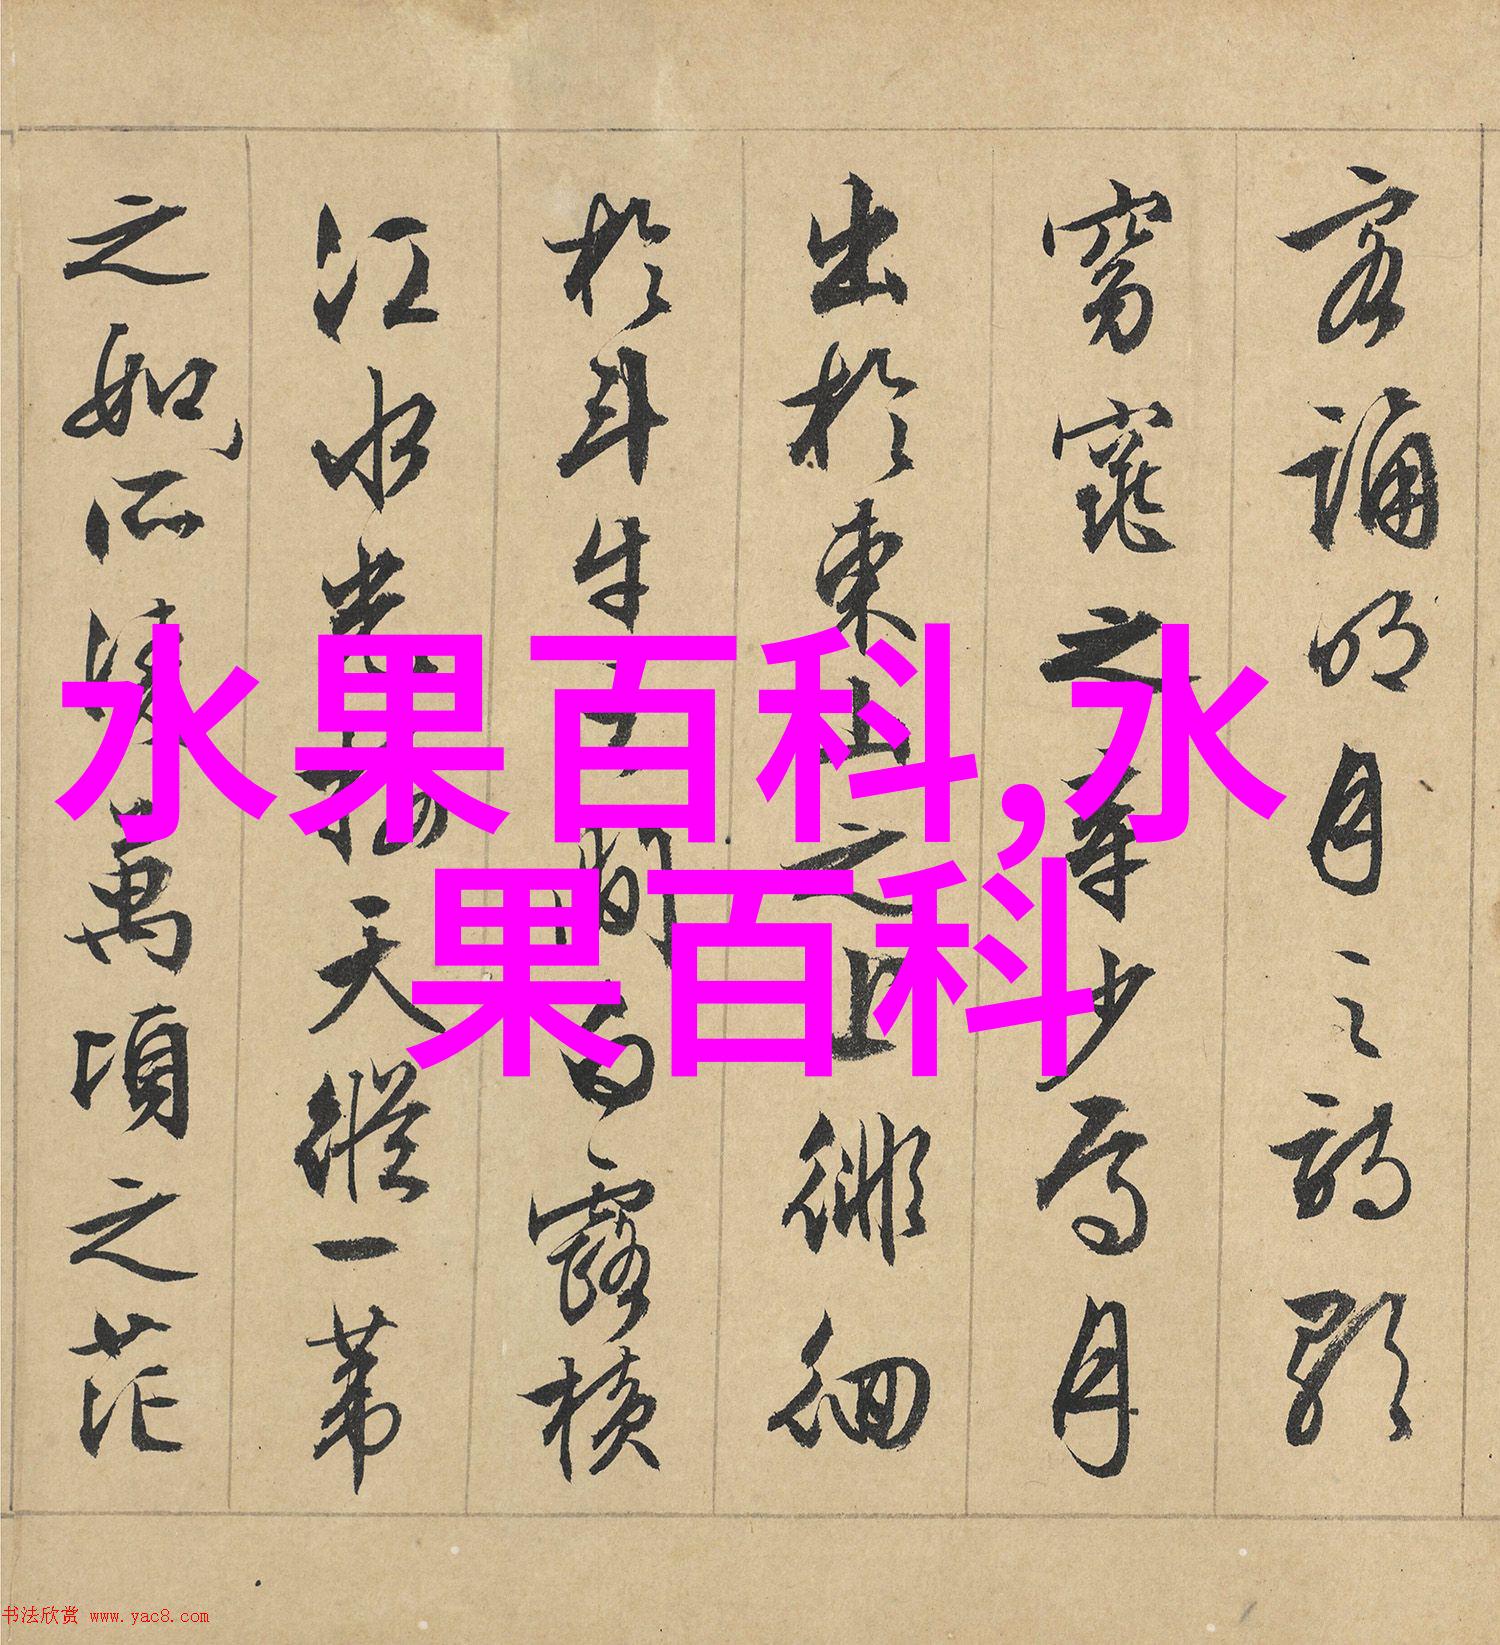 客誦明月之詩歌
窈窕之章少焉月
出於東山之上徘徊
於斗牛之間白露横
江水光接天縱一葦
之如所凌萬頃之茫
水果百科,水
果百科
书法欣赏 www.yac8.com